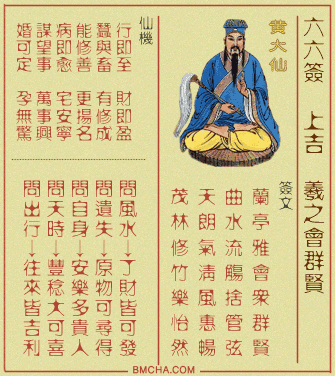 六六簽 上吉 羲之會群賢
黃大仙
簽文
蘭亭雅會衆群賢
曲水流觴捨管弦
天朗氣清風惠暢
茂林修竹樂怡然
仙機
行即至 財即盈
蠶與畜 有修成
能修善 更揚名
病即愈 宅安寧
謀望事 萬事興
婚可定 孕無驚
問風水→了財皆可發
問遺失→原物可尋得
問自身→安樂多貴人
問天時→豐稔大可喜
問出行→往來皆吉利
BMCHA.COM